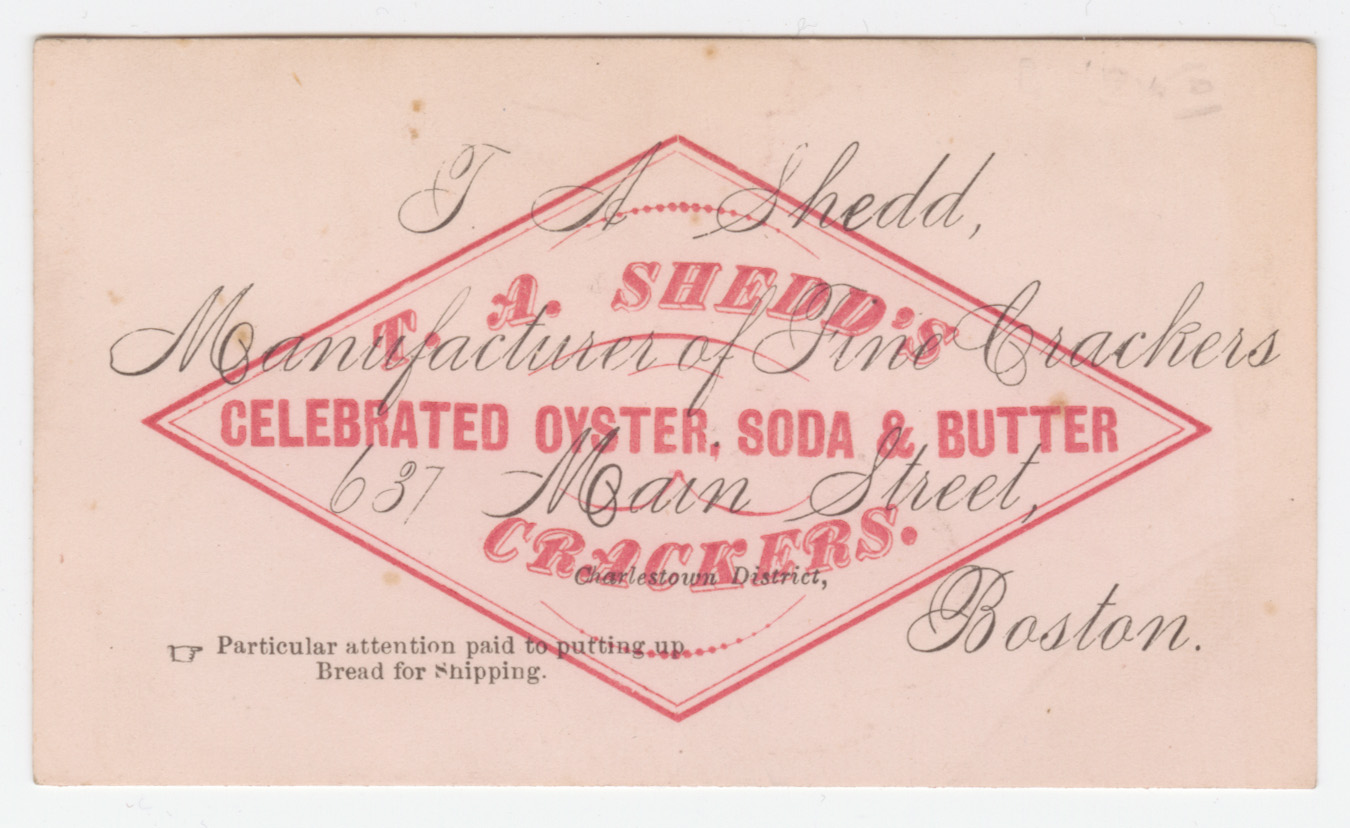 T. A. Shedd,
Manufacturer of Fine Crackers
637 Main Street,
Charlestown District,
Boston.
☞ Particular attention paid to putting up
Bread for Shipping.
T. A. SHEDD'S
CELEBRATED OYSTER, SODA & BUTTER
CRACKERS.